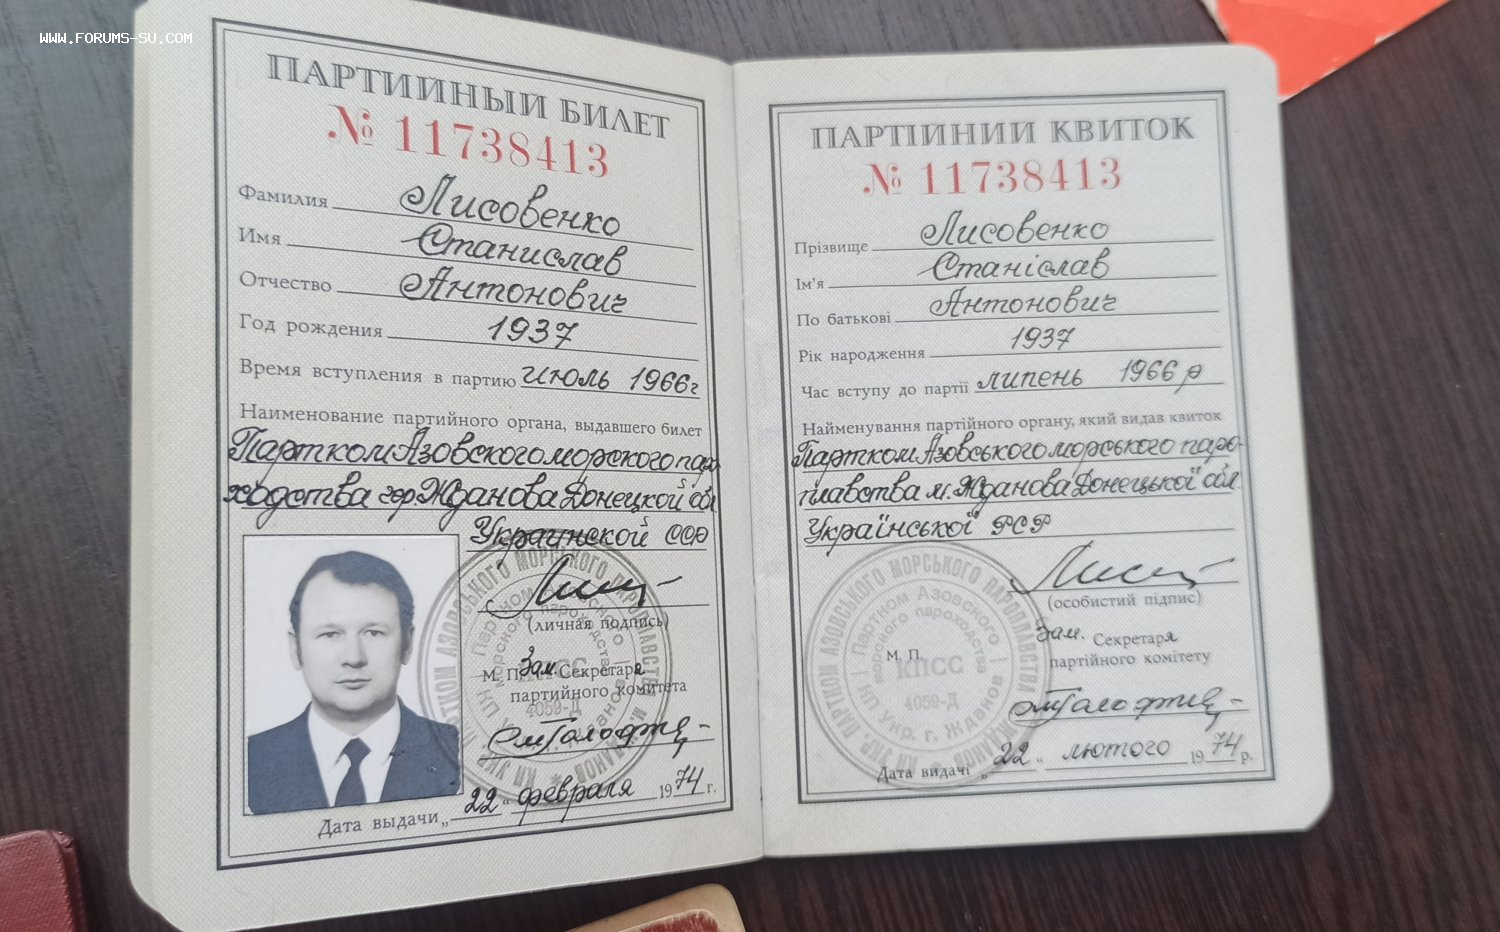 www.forums-su.com
ПАРТИЙНЫЙ БИЛЕТ
№ 11738413
Фамилия Лисовенко
Имя Станислав
Отчество Антонович
Год рождения 1937
Время вступления в партию июль 1966г
Наименование партийного органа, выдавшего билет
Партком Азовского морского паро-
ходства гор. Жданова Донецкой обл.
Украинской ССР
(личная подпись)
М. П. Зам. Секретаря
партийного комитета
Дата выдачи „22“ февраля 1974 г.
ПАРТІЙНИЙ КВИТОК
№ 11738413
Прізвище Лисовенко
Ім'я Станіслав
По батькові Антонович
Рік народження 1937
Час вступу до партії липень 1966 р
Найменування партійного органу, який видав квиток
Партком Азовського морського паро-
плавства м. Жданова Донецької обл.
Української РСР
(особистий підпис)
Зам. Секретаря
М. П.
партійного комітету
Дата видачі „22“ лютого 1974 р.
ПАРТКОМ АЗОВСЬКОГО МОРСЬКОГО ПАРОПЛАВСТВА М. ЖДАНОВ
Партком Азовского
морского пароходства
КПСС
4059-Д
г. Жданов